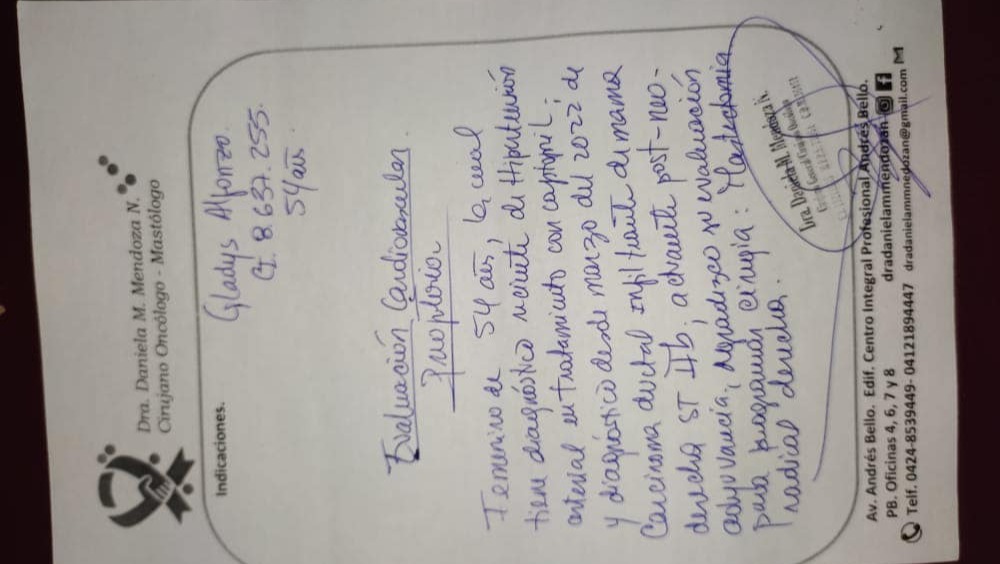 Dra. Daniela M. Mendoza N.
Cirujano Oncólogo - Mastólogo
Indicaciones.
Gladys Alfonzo.
CI. 8.637.255.
54 años.
Evaluación Cardiovascular
Preoperatoria
Femenino de 54 años, la cual
tiene diagnóstico reciente de Hipertensión
arterial en tratamiento con captopril.
y diagnóstico desde marzo del 2022 de
Carcinoma ductal infiltrante de mama
derecha ST IIb, actualmente post-neo-
adyuvancia, agradezco su evaluación
para programar cirugía: Mastectomía
radical derecha.
Dra. Daniela M. Mendoza N.
Av. Andrés Bello. Edif. Centro Integral Profesional Andrés Bello.
PB. Oficinas 4, 6, 7 y 8
dradanielammendozan
Telf. 0424-8539449- 04121894447 dradanielammnedozan@gmail.com